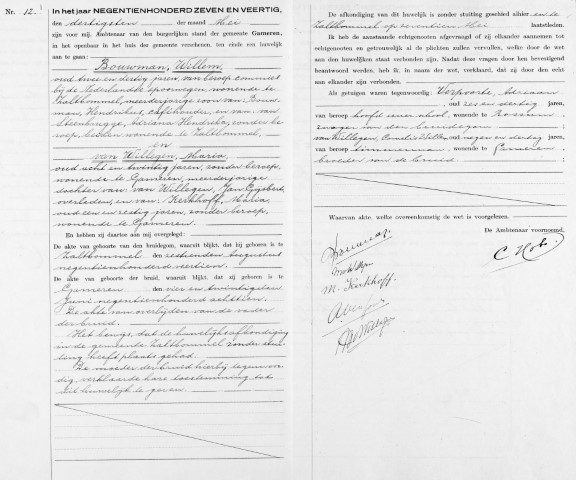 Nr. 12.
In het jaar NEGENTIENHONDERD ZEVEN EN VEERTIG,
den dertigsten der maand Mei
zijn voor mij, Ambtenaar van den burgerlijken stand der gemeente Gameren,
in het openbaar in het huis der gemeente verschenen, ten einde een huwelijk
aan te gaan:
Bouwman, Willem,
oud twee en dertig jaren, van beroep commies
bij de Nederlandsche spoorwegen, wonende te
Zaltbommel, meerderjarige zoon van Bouw-
man, Hendrikus, caféhouder, en van van
Steenbrugge, Adriana Hendrika, zonder be-
roep, beiden wonende te Zaltbommel,
en
van Willigen, Maria,
oud acht en twintig jaren, zonder beroep,
wonende te Gameren, meerderjarige
dochter van van Willigen, Jan Gijsbert,
overleden, en van Kerkhoff, Maria,
oud een en zestig jaren, zonder beroep,
wonende te Gameren.
En hebben zij daartoe aan mij overgelegd:
De akte van geboorte van den bruidegom, waaruit blijkt, dat hij geboren is te
Zaltbommel den zestienden Augustus
negentienhonderd veertien.
De akte van geboorte der bruid, waaruit blijkt, dat zij geboren is te
Gameren den vier en twintigsten
Juni negentienhonderd achttien.
De akte van overlijden van de vader
der bruid.
Het bewijs, dat de huwelijksafkondiging
in de gemeente Zaltbommel zonder stui-
ting heeft plaats gehad.
De moeder der bruid hierbij tegenwoor-
dig, verklaarde hare toestemming tot
dit huwelijk te geven.
De afkondiging van dit huwelijk is zonder stuiting geschied alhier en te
Zaltbommel op zeventien Mei laatstleden.
Ik heb de aanstaande echtgenooten afgevraagd of zij elkander aannemen tot
echtgenooten en getrouwelijk al de plichten zullen vervullen, welke door de wet
aan den huwelijken staat verbonden zijn. Nadat deze vragen door hen bevestigend
beantwoord werden, heb ik, in naam der wet, verklaard, dat zij door den echt
aan elkander zijn verbonden.
Als getuigen waren tegenwoordig: Verpoorte, Adriaan
, oud zes en dertig jaren,
van beroep wonende te Rossum
zwager van den bruidegom ;
van Willigen, Cornelis Willem oud negen en dertig jaren,
van beroep timmerman, wonende te Gameren,
broeder van de bruid ;
Waarvan akte, welke overeenkomstig de wet is voorgelezen.
De Ambtenaar voornoemd,
M. Kerkhoff.